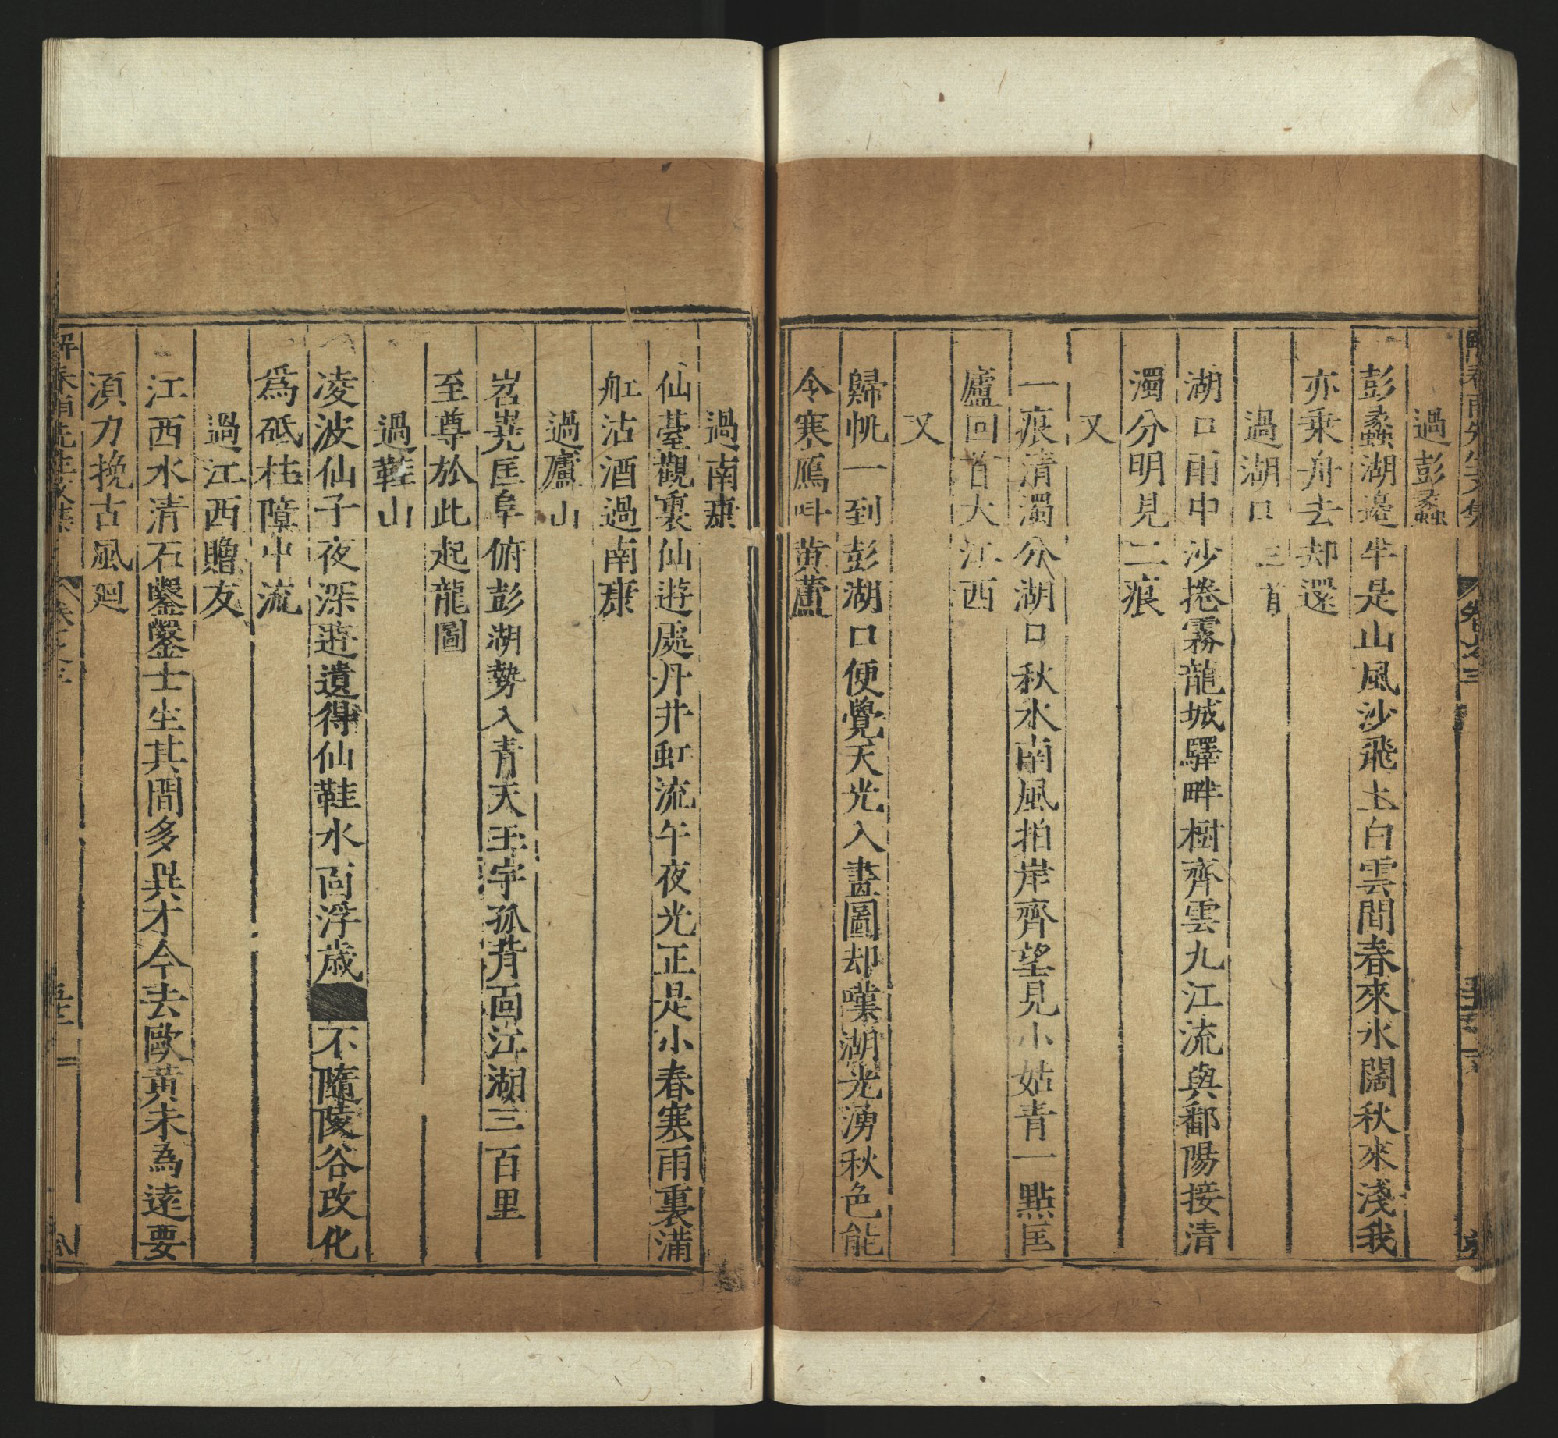 過彭蠡
彭蠡湖邉半是山風沙飛土白雲間春來水闊秋來淺我
亦乗舟去却還
過湖口三首
湖口雨中沙捲霧龍城驛畔樹齊雲九江流與鄱陽接清
濁分明見二痕
又
一痕清濁分湖口秋水南風拍岸齊望見小姑青一點匡
廬回首大江西
又
歸帆一到彭湖口便覺天光入畫圖却嘆湖光湧秋色能
令寒鴈呌黄蘆
過南康
仙臺觀裏仙遊處丹井虹流午夜光正是小春寒雨裏滿
舡沽酒過南康
過廬山
岧嶤匡阜俯彭湖勢入青天玉宇孤背靣江湖三百里
至尊於此起龍圖
過鞋山
凌波仙子夜深遊遺得仙鞋水面浮歲不隨陵谷改化
為砥柱障中流
過江西贈友
江西水清石鑿鑿士生其間多異才今去歐黃未為逺要
湏力挽古風廻
卷之三